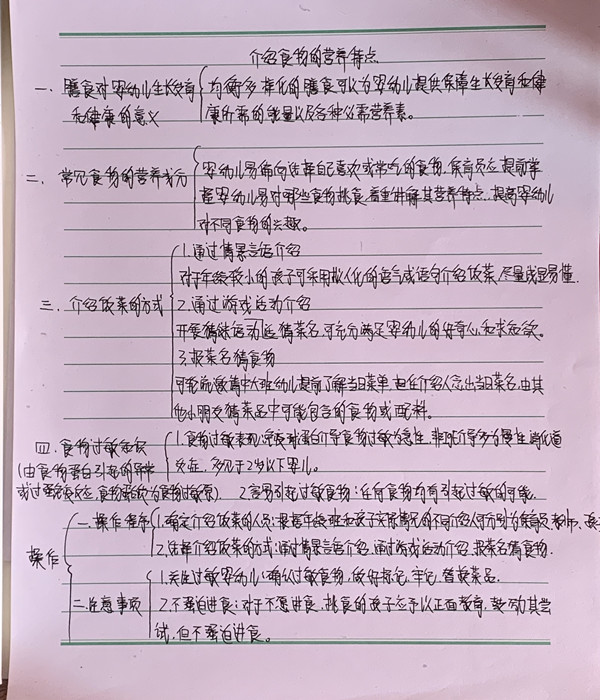 介绍食物的营养特点
一、膳食对婴幼儿生长发育 均衡多样化的膳食可以为婴幼儿提供保障生长发育和健
和健康的意义 康所需的能量以及各种必需营养素。
二、常见食物的营养成分 婴幼儿易偏向选择自己喜欢或常吃的食物,保育员应提前掌
握婴幼儿易对哪些食物挑食,着重讲解其营养特点,提高婴幼儿
对不同食物的兴趣。
1.通过情景言语介绍
对于年级较小的孩子可采用拟人化的语气或语句介绍饭菜,尽量浅显易懂.
三、介绍饭菜的方式 2.通过游戏活动介绍
开展猜谜活动返猜菜名,可充分满足婴幼儿的好奇心和求知欲。
3.报菜名猜食物
可轮流邀请中大班幼儿提前了解当日菜单,担任介绍人念出当日菜名,由其
他小朋友猜菜品中可能包含的食物或配料。
四.食物过敏知识 1.食物过敏表现:免疫球蛋白介导食物过敏为急性,非免疫介导多为慢性,消化道
(由食物蛋白引起的异常 反应,多见于2岁以下婴儿。
或过强免疫反应,食物蛋白称为食物过敏原) 2.容易引起过敏食物:任何食物均有引起过敏的可能.
一.操作程序 1.确定介绍饭菜的人员:根据年级班和孩子实际情况的不同介绍人可分别为保育员、教师、孩子
操作 2.选择介绍饭菜的方式:通过情景言语介绍,通过游戏活动介绍,报菜名猜食物.
1.关注过敏婴幼儿:确认过敏食物,做好标记,牢记,替换菜品.
二.注意事项 2.不强迫进食:对于不愿进食,挑食的孩子应予以正面教育,鼓励其尝
试,但不强迫进食。